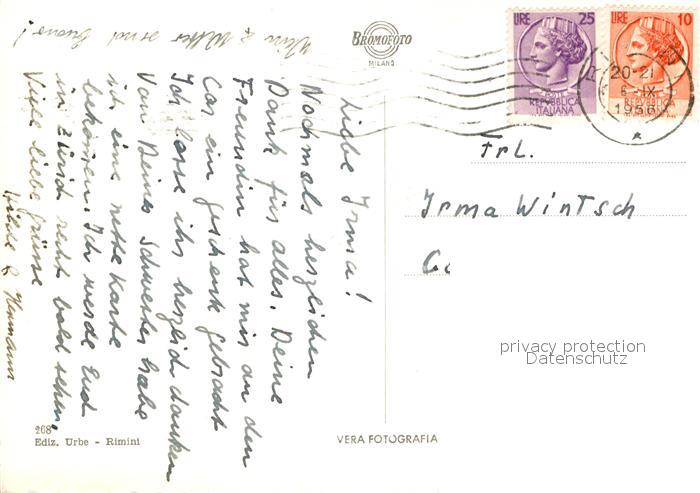 Wein & Wetter sind buono!
Liebe Irma!
Nochmals herzlichen
Dank für alles. Deine
Freundin hat mir an den
Car ein geschenk gebracht
Ich lasse ihr herzlich danken
Von Deiner Schwester habe
ich eine nette Karte
bekommen. Ich werde Euch
in Zürich recht bald sehen.
Viele liebe Grüsse
Hilde & Hermann
BROMOFOTO
MILANO
LIRE 25
REPVBBLICA
ITALIANA
LIRE 10
REPVBBLICA
20-21
6 IX
1956
Frl.
Irma Wintsch
privacy protection
Datenschutz
268
Ediz. Urbe - Rimini
VERA FOTOGRAFIA